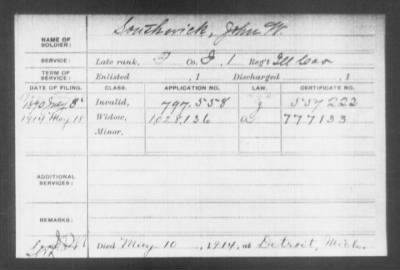 Southwick, John W.
NAME OF SOLDIER:
SERVICE: Late rank, P Co. I, 1 Reg't Ill Cav
TERM OF SERVICE: Enlisted , 1 Discharged , 1
DATE OF FILING. CLASS. APPLICATION NO. LAW. CERTIFICATE NO.
1890 Invalid, 797.558 j 557222
1914 May 18 Widow, 1028,136 a 777133
Minor,
ADDITIONAL SERVICES:
REMARKS:
Died May 10, 1914, at Detroit, Mich.